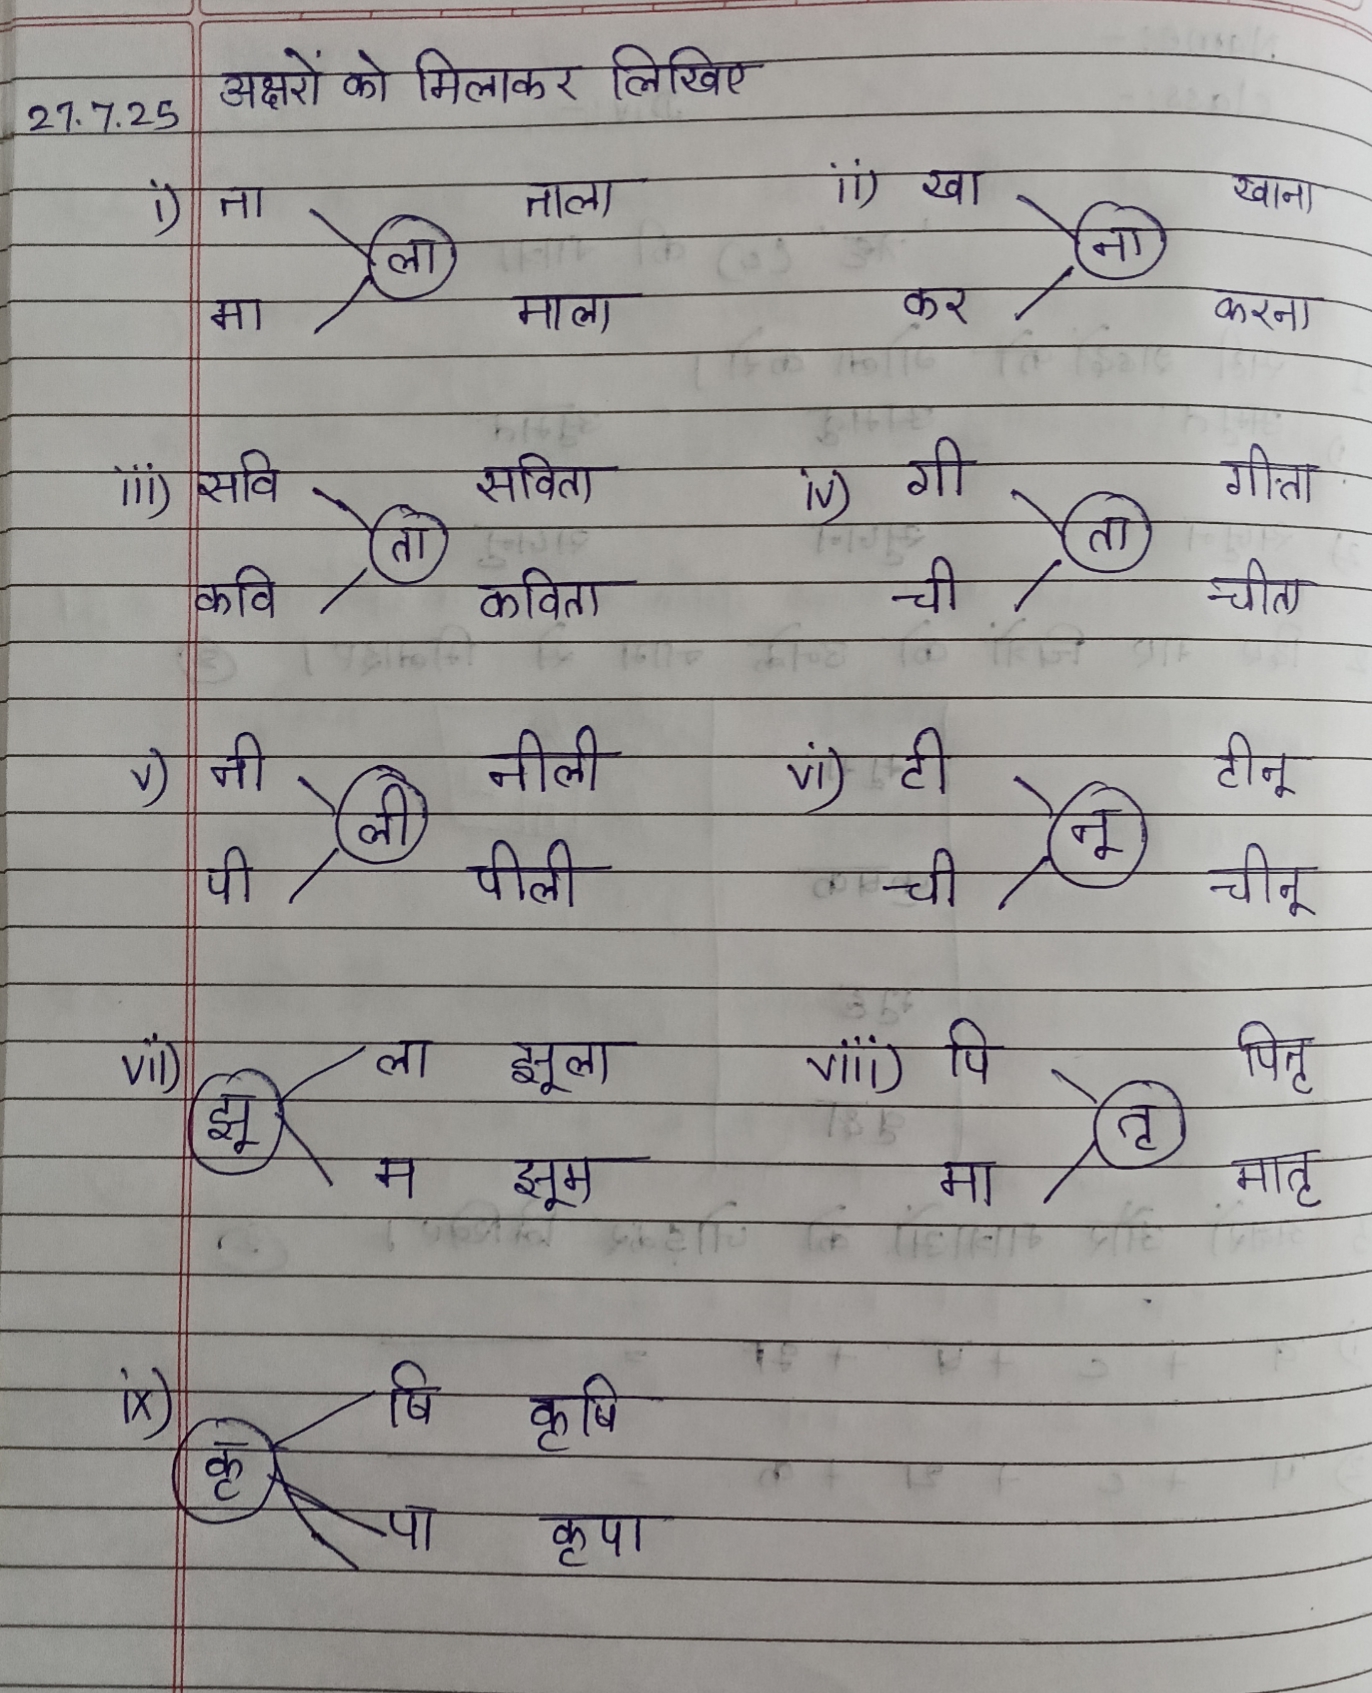 अक्षरों को मिलाकर लिखिए
27.7.25
i) ता ताला ii) खा खाना
ला ना
मा माला कर करना
iii) सवि सविता iv) गी गीता
ता ता
कवि कविता ची चीता
v) नी नीली vi) टी टीनू
ली नू
पी पीली ची चीनू
vii) ला झूला viii) पि पितृ
झू तृ
म झूम मा मातृ
ix) षि कृषि
कृ
पा कृपा